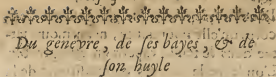 Du genevre, de ſes bayes, & de
ſon huyle